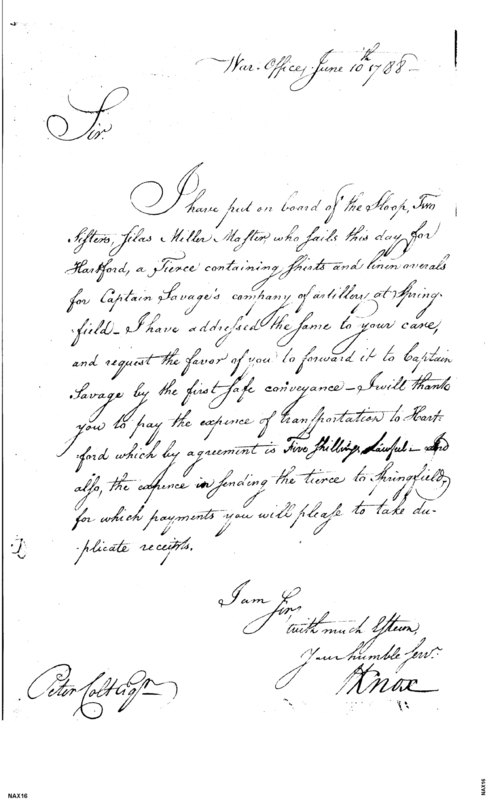 War Office, June 10th 1788 —
Sir.
I have put on board of the Sloop, Two
Sisters, Silas Miller Master, who sails this day for
Hartford, a Tierce containing Shirts and linen overals
for Captain Savage's company of artillery at Spring-
-field — I have addressed the same to your care,
and request the favor of you to forward it to Captain
Savage by the first safe conveyance — I will thank
you to pay the expence of transportation to Hart-
ford which by agreement is Five Shillings, Lawful — and
also, the expence in sending the tierce to Springfield,
for which payments you will please to take du-
-plicate receipts.
I am Sir,
with much Esteem,
Your humble Servt.
HKnox
Peter Colt Esqr
NAX16
NAX16